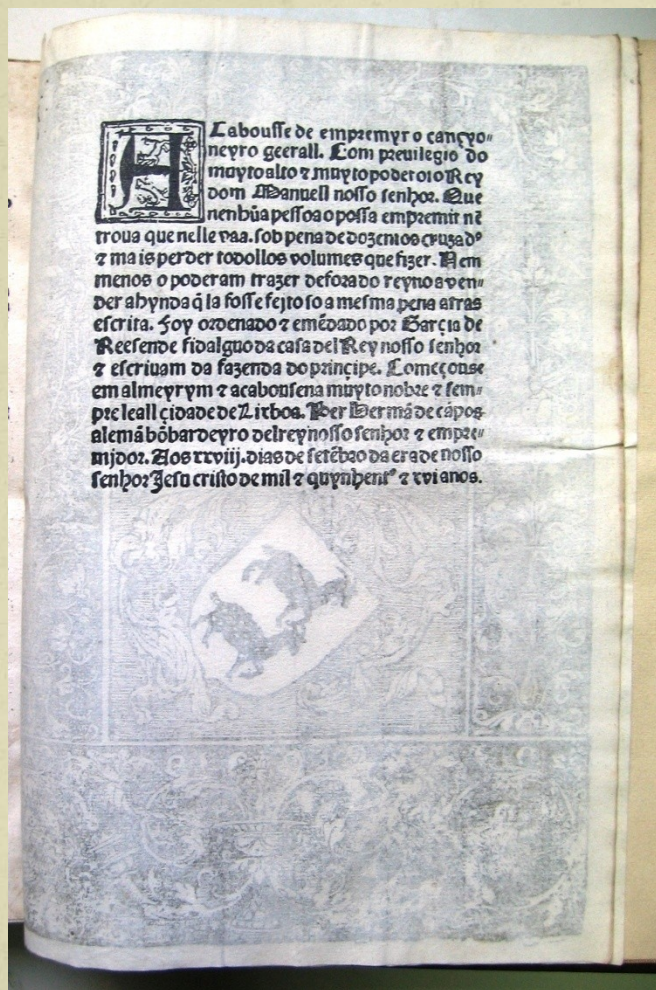 Acabousse de empremyr o cançyo⸗
neyro geerall. Com preuilegio do
muyto alto ⁊ muyto poderoso Rey
dom Manuell nosso senhor. Que
nenhũa pessoa o possa empremir nẽ
troua que nelle vaa. sob pena de dozentos cruzadꝰ
⁊ mais perder todollos volumes que fizer. Nem
menos o poderam trazer de fora do reyno a ven⸗
der ahynda q̃ la fosse fejto so a mesma pena atras
escrita. Foy ordenado ⁊ emẽdado por Garçia de
Reesende fidalguo da casa del Rey nosso senhor
⁊ escriuam da fazenda do prinçipe. Começouse
em almeyrym ⁊ acabousena muyto nobre ⁊ sem⸗
pre leall çidade de Lixboa. Per Hermã de cãpos
alemã bõbardeyro delrey nosso senhor ⁊ empre⸗
mjdor. Aos xxviij. dias de setẽbro da era de nosso
senhor Jesu cristo de mil ⁊ quynhentꝰ ⁊ xvi anos.